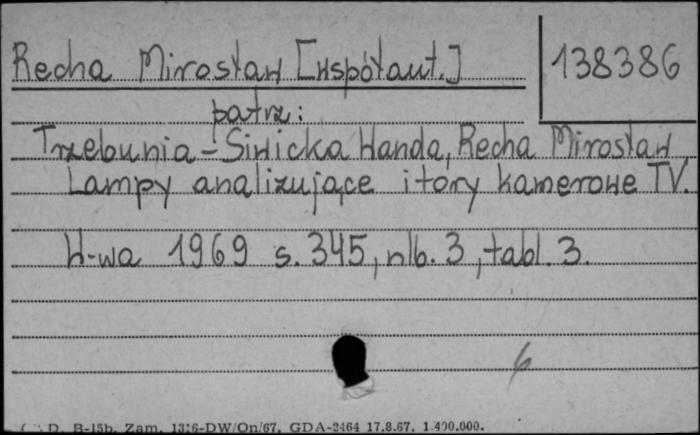 Recha Mirosław [współaut.]
138386
patrz:
Trzebunia-Siwicka Wanda, Recha Mirosław
Lampy analizujące i tory kamerowe TV.
W-wa 1969 s. 345, nlb. 3, tabl. 3.
6
D. B-15b. Zam. 1316-DW/On/67. GDA-2464 17.8.67. 1.400.000.